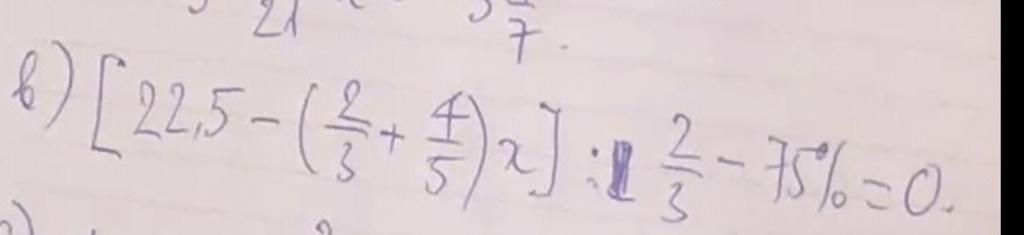 21 7.
в) [22,5 − (2/3 + 4/5)x] : 1 2/3 − 75% = 0.